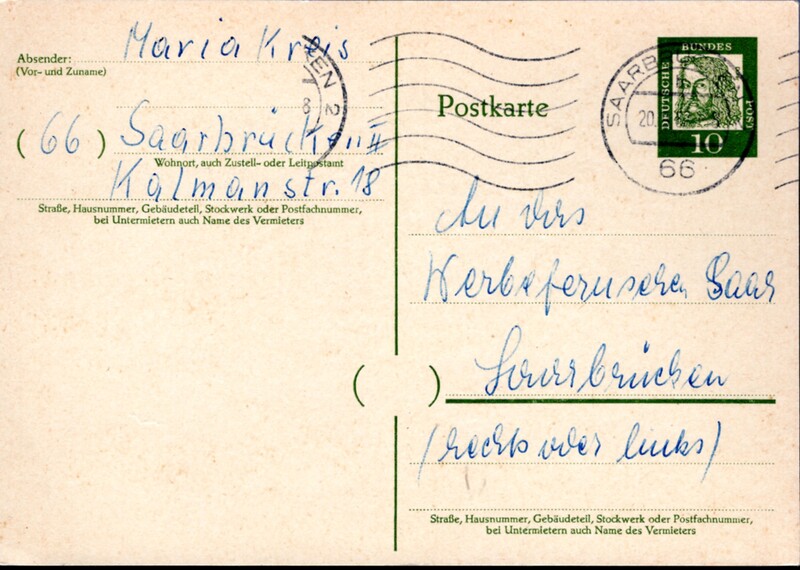 Absender:
(Vor- und Zuname)
Maria Kreis
(66) Saarbrücken II
Wohnort, auch Zustell- oder Leitpostamt
Kalmanstr. 18
Straße, Hausnummer, Gebäudeteil, Stockwerk oder Postfachnummer,
bei Untermietern auch Name des Vermieters
KEN 2
8
Postkarte
SAARBR
20.
66
DEUTSCHE
BUNDES
POST
10
An das
Werbefernsehen Saar
Saarbrücken
(rechts oder links)
Straße, Hausnummer, Gebäudeteil, Stockwerk oder Postfachnummer,
bei Untermietern auch Name des Vermieters